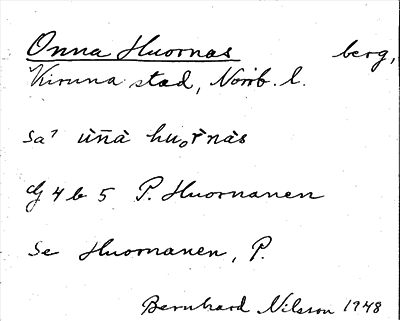 Onna Huornas berg,
Kiruna stad, Norrb. l.
sa? ùn̄à huₒr̀nàs
Gj 4 b 5 P. Huornanen
Se Huornanen, P.
Bernhard Nilsson 1948